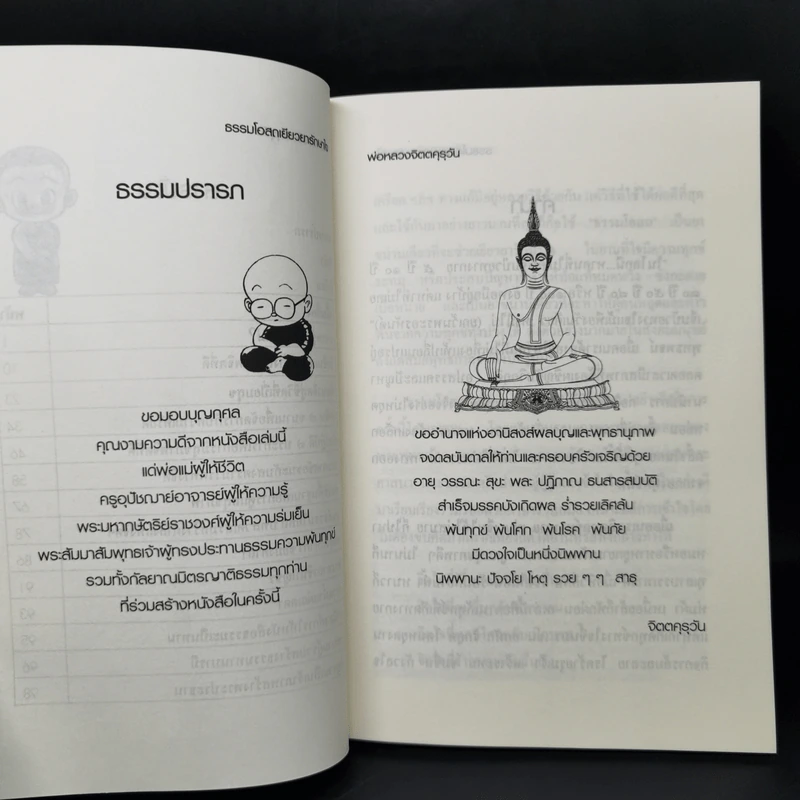 ธรรมโอสถเยียวยารักษาใจ
ธรรมปรารภ
ขอมอบบุญกุศล
คุณงามความดีจากหนังสือเล่มนี้
แด่พ่อแม่ผู้ให้ชีวิต
ครูอุปัชฌาย์อาจารย์ผู้ให้ความรู้
พระมหากษัตริย์ราชวงศ์ผู้ให้ความร่มเย็น
พระสัมมาสัมพุทธเจ้าผู้ทรงประทานธรรมความพ้นทุกข์
รวมทั้งกัลยาณมิตรญาติธรรมทุกท่าน
ที่ร่วมสร้างหนังสือในครั้งนี้
พ่อหลวงจิตตคุรุวัน
ขออำนาจแห่งอานิสงส์ผลบุญและพุทธานุภาพ
จงดลบันดาลให้ท่านและครอบครัวเจริญด้วย
อายุ วรรณะ สุขะ พละ ปฏิภาณ ธนสารสมบัติ
สำเร็จมรรคบังเกิดผล ร่ำรวยเลิศล้น
พ้นทุกข์ พ้นโศก พ้นโรค พ้นภัย
มีดวงใจเป็นหนึ่งนิพพาน
นิพพานะ ปัจจโย โหตุ รวย ๆ ๆ สาธุ
จิตตคุรุวัน